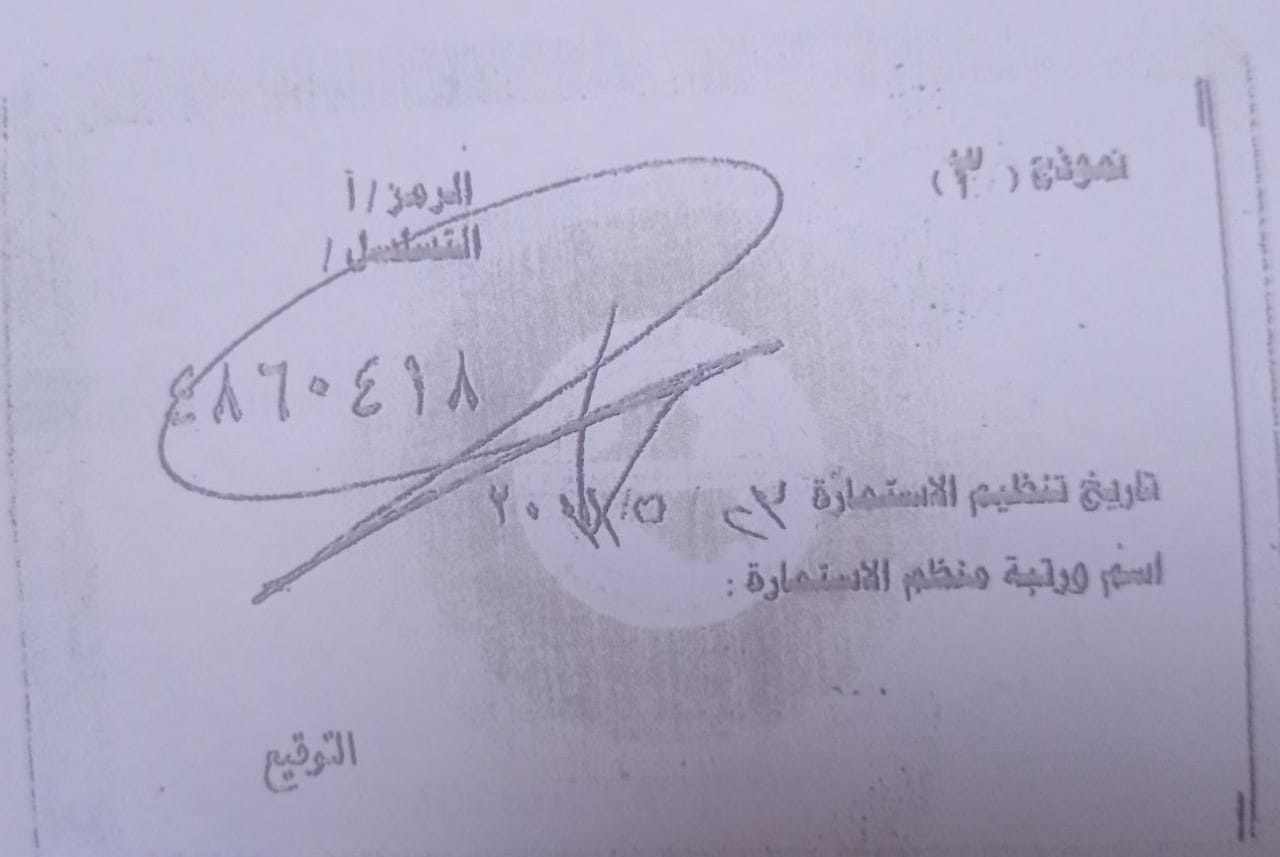 نموذج (٣)
الرمز / أ
التسلسل /
٤٨٦٠٤١٨
تاريخ تنظيم الاستمارة ٢٣ / ٥ /
اسم ورتبة منظم الاستمارة :
التوقيع